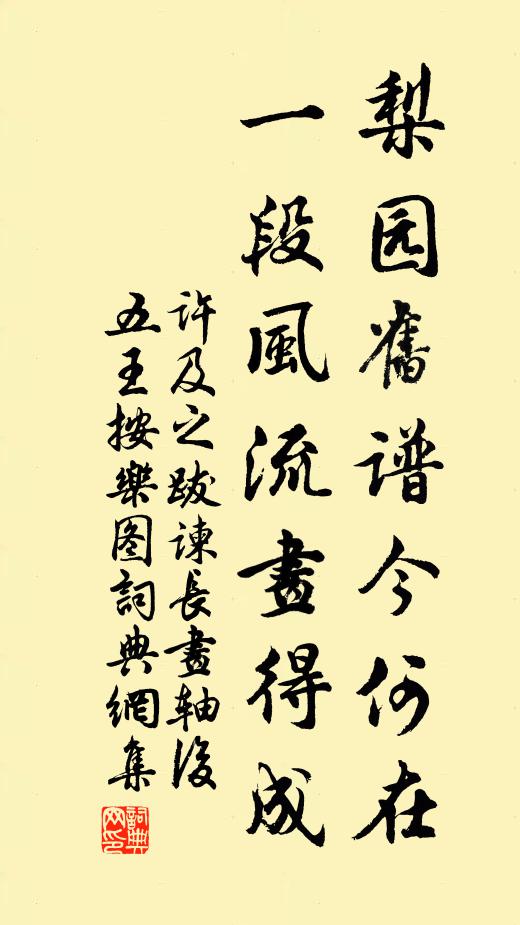 梨园舊谱今何在
一段風流畫得成
許及之跋諫長畫軸後
五王按樂图詞典網集
詞典网印